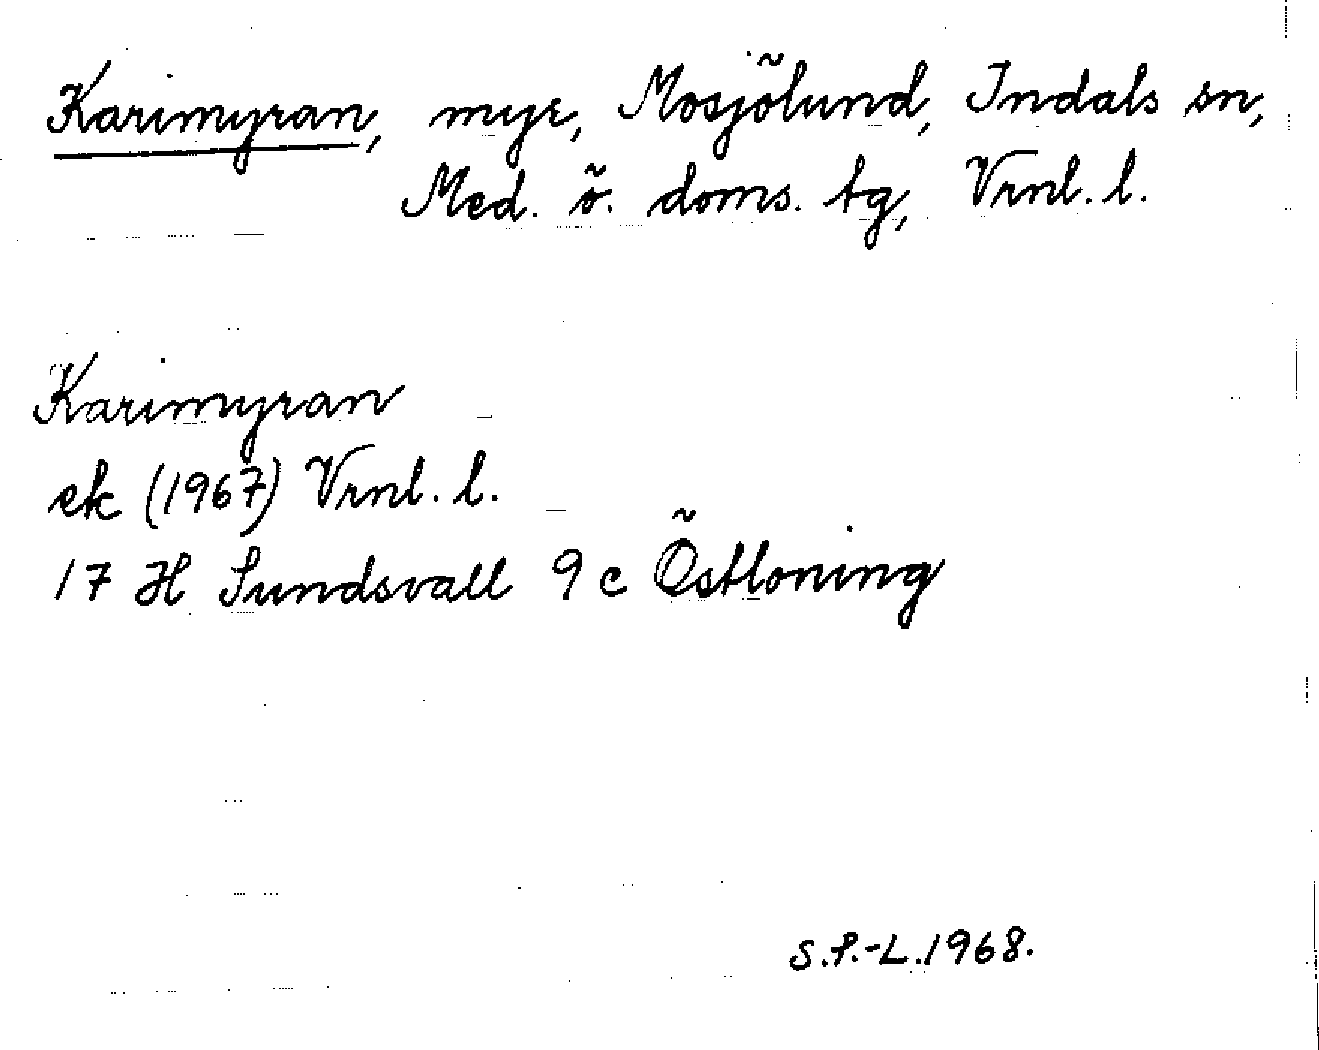 Karimyran, myr, Mosjölund, Indals sn,
Med. ö. doms. tg, Vrnl. l.
Karimyran
ek (1967) Vrnl. l.
17 H Sundsvall 9 c Östloning
S.P.-L. 1968.